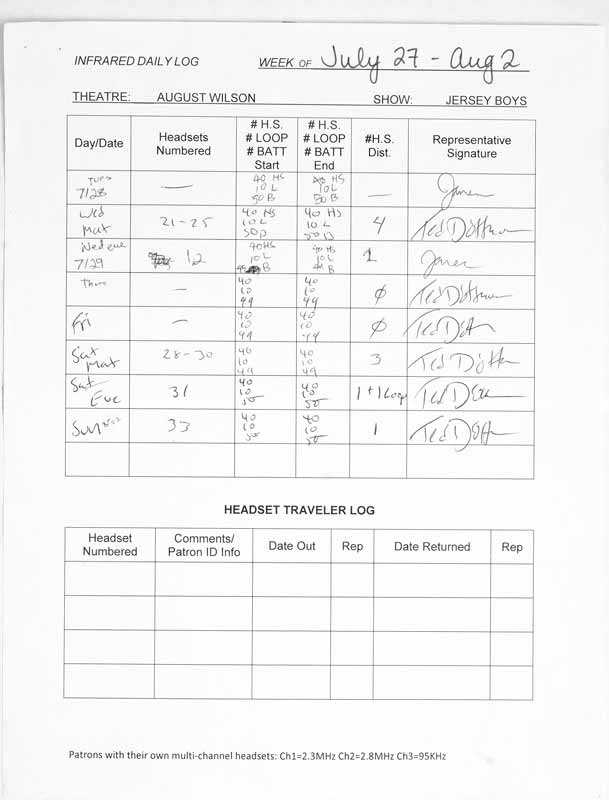 INFRARED DAILY LOG WEEK OF July 27 - Aug 2
THEATRE: AUGUST WILSON SHOW: JERSEY BOYS
Day/Date Headsets Numbered # H.S. # LOOP # BATT Start # H.S. # LOOP # BATT End #H.S. Dist. Representative Signature
Tues 7/28 — 40 HS 10 L 50 B 40 HS 10 L 50 B —
Wed Mat 21-25 40 HS 10 L 50 B 40 HS 10 L 50 B 4
Wed eve 7/29 12 40 HS 10 L B 40 HS 10 L B 1
Thurs — 40 10 49 40 10 49 ∅
Fri — 40 10 49 40 10 49 ∅
Sat Mat 28-30 40 10 49 40 10 49 3
Sat Eve 31 40 10 50 40 10 50 1+1 Loop
Sun 8/02 33 40 10 50 40 10 50 1
HEADSET TRAVELER LOG
Headset Numbered Comments/ Patron ID Info Date Out Rep Date Returned Rep
Patrons with their own multi-channel headsets: Ch1=2.3MHz Ch2=2.8MHz Ch3=95KHz